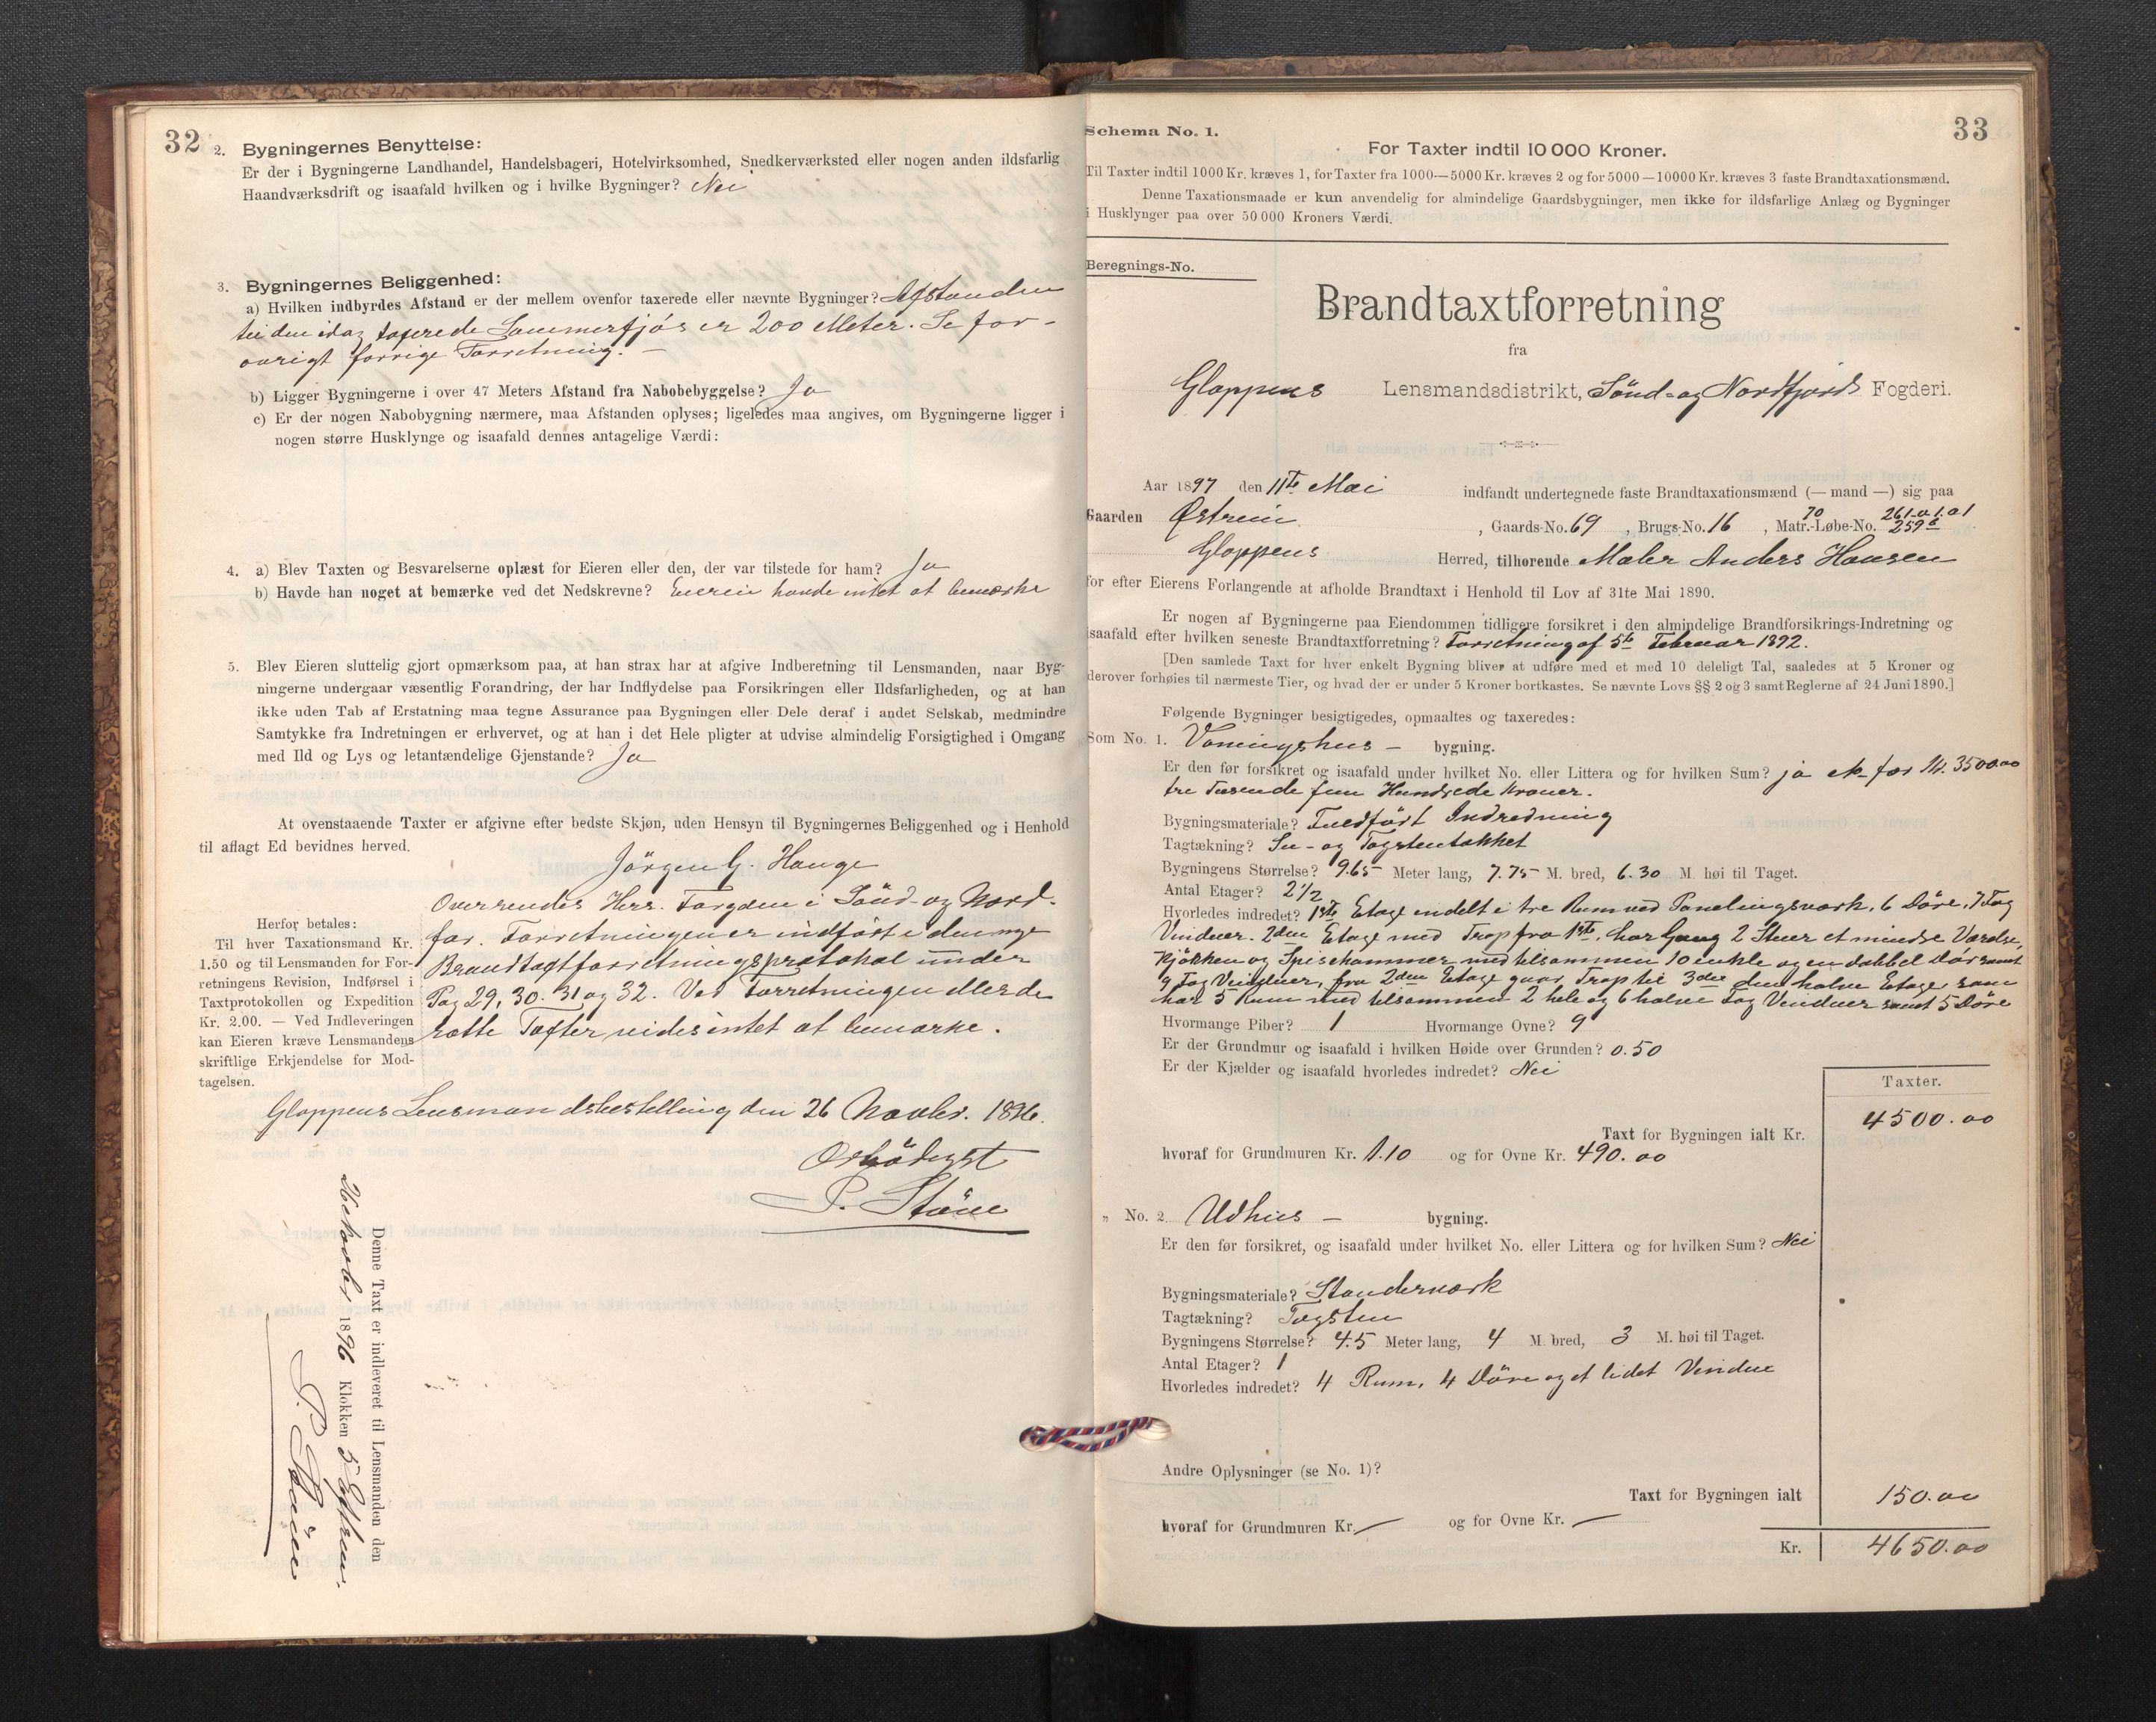 32
2. Bygningernes Benyttelse:
Er der i Bygningerne Landhandel, Handelsbageri, Hotelvirksomhed, Snedkerværksted eller nogen anden ildsfarlig
Haandværksdrift og isaafald hvilken og i hvilke Bygninger? Nei
3. Bygningernes Beliggenhed:
a) Hvilken indbyrdes Afstand er der mellem ovenfor taxerede eller nævnte Bygninger? Afstanden
til den idag taxerede Sommerfjös er 200 Meter. Se for-
øvrigt forrige Forretning. —
b) Ligger Bygningerne i over 47 Meters Afstand fra Nabobebyggelse? Ja
c) Er der nogen Nabobygning nærmere, maa Afstanden oplyses; ligeledes maa angives, om Bygningerne ligger i
nogen større Husklynge og isaafald dennes antagelige Værdi:
4. a) Blev Taxten og Besvarelserne oplæst for Eieren eller den, der var tilstede for ham? Ja
b) Havde han noget at bemærke ved det Nedskrevne? Eieren havde intet at bemærke
5. Blev Eieren sluttelig gjort opmærksom paa, at han strax har at afgive Indberetning til Lensmanden, naar Byg-
ningerne undergaar væsentlig Forandring, der har Indflydelse paa Forsikringen eller Ildsfarligheden, og at han
ikke uden Tab af Erstatning maa tegne Assurance paa Bygningen eller Dele deraf i andet Selskab, medmindre
Samtykke fra Indretningen er erhvervet, og at han i det Hele pligter at udvise almindelig Forsigtighed i Omgang
med Ild og Lys og letantændelige Gjenstande? Ja
At ovenstaaende Taxter er afgivne efter bedste Skjøn, uden Hensyn til Bygningernes Beliggenhed og i Henhold
til aflagt Ed bevidnes herved.
Jörgen G. Hauge
Oversendes Herr. Fogden i Sönd- og Nord-
fjor. Forretningen er indfört i den nye
Brandtaxtforretningsprotokol under
Pag 29, 30. 31 og 32. Ved Forretningen eller de
satte Taxter vides intet at bemærke.
Herfor betales:
Til hver Taxationsmand Kr.
1.50 og til Lensmanden for For-
retningens Revision, Indførsel i
Taxtprotokollen og Expedition
Kr. 2.00. — Ved Indleveringen
kan Eieren kræve Lensmandens
skriftlige Erkjendelse for Mod-
tagelsen.
Gloppens Lensmandsbestilling den 26 Novbr. 1896.
Ærbödigst
P. Stöve
Denne Taxt er indleveret til Lensmanden den
26 Novbr 1896 Klokken 5 Eftrm.
P. Stöve
Schema No. 1.
33
For Taxter indtil 10 000 Kroner.
Til Taxter indtil 1000 Kr. kræves 1, for Taxter fra 1000—5000 Kr. kræves 2 og for 5000—10000 Kr. kræves 3 faste Brandtaxationsmænd.
Denne Taxationsmaade er kun anvendelig for almindelige Gaardsbygninger, men ikke for ildsfarlige Anlæg og Bygninger
i Husklynger paa over 50 000 Kroners Værdi.
Beregnings-No.
Brandtaxtforretning
fra
Gloppens Lensmandsdistrikt, Sönd- og Nordfjords Fogderi.
Aar 1897 den 11te Mai indfandt undertegnede faste Brandtaxationsmænd (— mand —) sig paa
Gaarden Østrein, Gaards-No. 69, Brugs-No. 16, Matr.-Løbe-No. 70 261.a.1.a1 259
Gloppens Herred, tilhørende Maler Anders Hansen
for efter Eierens Forlangende at afholde Brandtaxt i Henhold til Lov af 31te Mai 1890.
Er nogen af Bygningerne paa Eiendommen tidligere forsikret i den almindelige Brandforsikrings-Indretning og
isaafald efter hvilken seneste Brandtaxtforretning? Forretning af 5te Februar 1892.
[Den samlede Taxt for hver enkelt Bygning bliver at udføre med et med 10 deleligt Tal, saaledes at 5 Kroner og
derover forhøies til nærmeste Tier, og hvad der er under 5 Kroner bortkastes. Se nævnte Lovs §§ 2 og 3 samt Reglerne af 24 Juni 1890.]
Følgende Bygninger besigtigedes, opmaaltes og taxeredes:
Som No. 1. Vaaningshus — bygning.
Er den før forsikret og isaafald under hvilket No. eller Littera og for hvilken Sum? ja for Kr. 3500.00
tre Tusende fem Hundrede Kroner.
Bygningsmateriale? Fuldfört Indredning
Tagtækning? Su- og Tagstentækket
Bygningens Størrelse? 9.65 Meter lang, 7.75 M. bred, 6.30 M. høi til Taget.
Antal Etager? 2 1/2
Hvorledes indredet? 1ste Etage indelt i tre Rum ved Panelingsværk, 6 Döre, 7 Fag
Vinduer. 2den Etage med Trap fra 1ste, har Gang 2 Stuer et mindre Værelse,
Kjökken og Spisekammer med tilsammen 10 enkle og en dobbel Dör samt
9 Fag Vinduer, fra 2den Etage gaar Trap til 3die den halve Etage, som
har 5 Rum med tilsammen 2 hele og 6 halve Fag Vinduer samt 5 Döre
Hvormange Piber? 1 Hvormange Ovne? 9
Er der Grundmur og isaafald i hvilken Høide over Grunden? 0.50
Er der Kjælder og isaafald hvorledes indredet? Nei
Taxter.
Taxt for Bygningen ialt Kr. 4500.00
hvoraf for Grundmuren Kr. 1.10 og for Ovne Kr. 490.00
„ No. 2. Udhus — bygning.
Er den før forsikret, og isaafald under hvilket No. eller Littera og for hvilken Sum? Nei
Bygningsmateriale? Standerværk
Tagtækning? Tagsten
Bygningens Størrelse? 4.5 Meter lang, 4 M. bred, 3 M. høi til Taget.
Antal Etager? 1
Hvorledes indredet? 4 Rum, 4 Döre og et lidet Vindue
Andre Oplysninger (se No. 1)?
Taxt for Bygningen ialt 150.00
hvoraf for Grundmuren Kr. — og for Ovne Kr. —
Kr. 4650.00